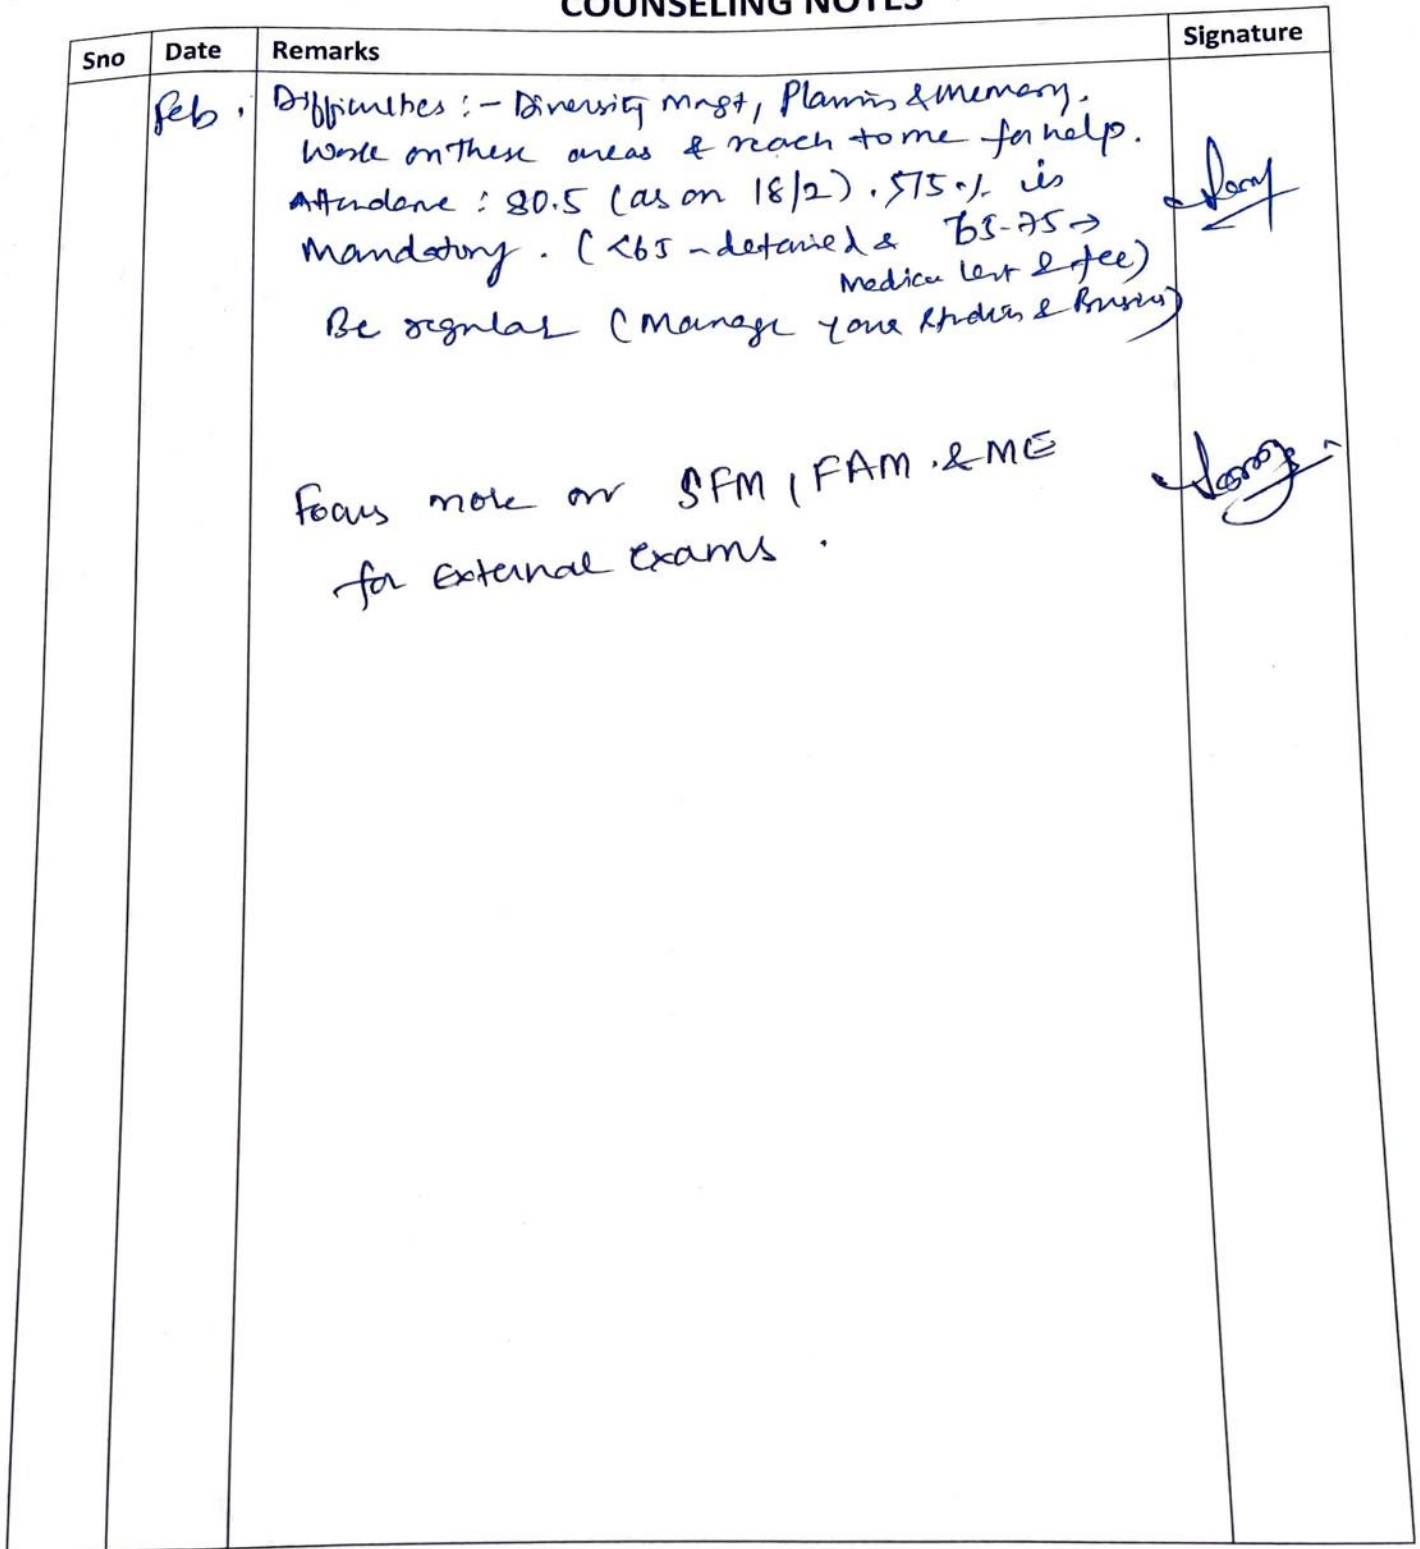 COUNSELING NOTES
Sno Date Remarks Signature
Feb. Difficulties :- Diversity Mngt, Planning & memory.
Work on these areas & reach to me for help.
Attendance : 80.5 (as on 18/2). >75% is
Mandatory. (<65 - detained & 65-75 →
Medical cert & fee)
Be regular (Manage your studies & Business)
Focus more on SFM, FAM & ME
for External exams.